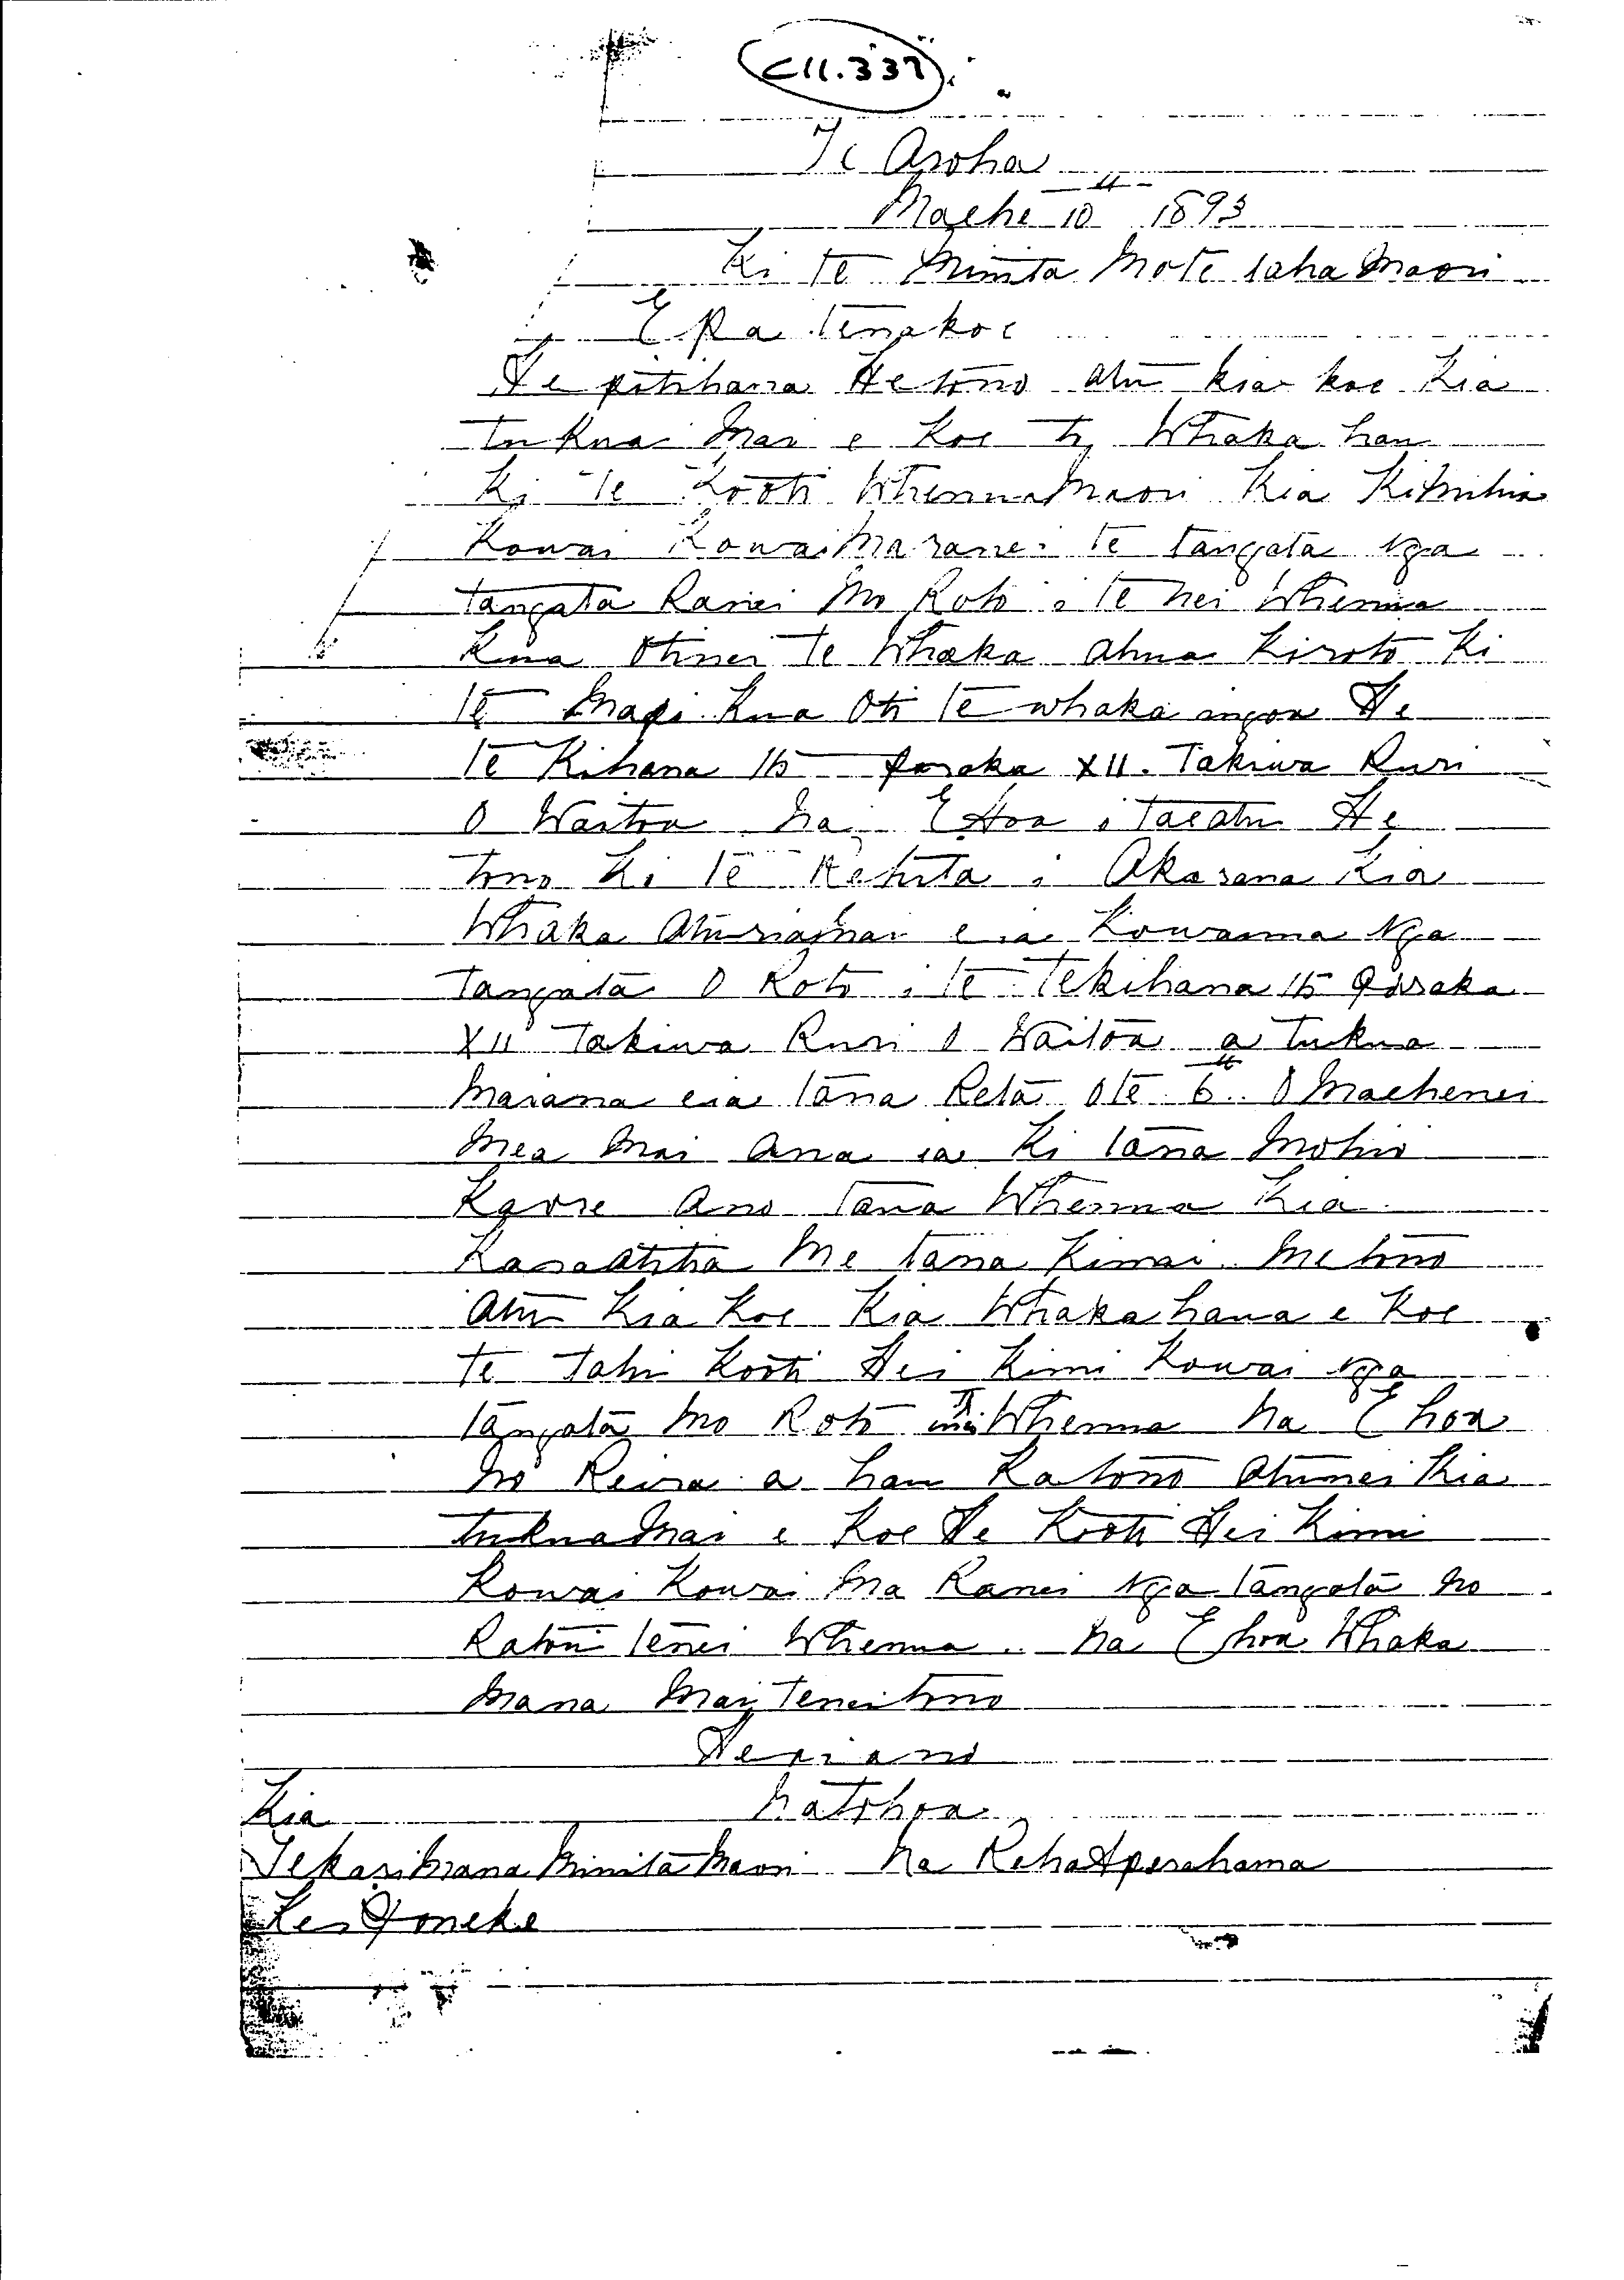 C11.337
Te Aroha
Maehe 10th 1893
Ki te Minita Mote taha Maori
E Pa tenakoe
He pitihana He tono atu kia koe Kia
tukua Mai e Koe te Whaka hau
Ki te Kooti WhenuaMaori Kia Kimihia
Kowai KowaiMaranei te tangata Nga
tangata Ranei Mo Roto i te nei Whenua
Kua Otinei te Whaka atua Kiroto Ki
te Mapi Kua Oti te whaka ingoa He
te Kihana 15 Paraka XII. Takiwa Ruri
O Waitoa Na E Hoa i taeatu He
tono Ki te Rehita i Akarana Kia
Whaka aturiamai e ia Kowaima Nga
Tangata O Roto i te Tekihana 15 Paraka
XII Takiwa Ruri O Waitoa a tukua
Maiana eia tana Reta O te 6th O Maehenei
Mea Mai Ana ia Ki tana Mohio
Kaore Ano tana Whenua Kia
Karaatitia Me tana Kimai Me tono
atu Kia Koe Kia Whaka haua e Koe
te tahi Kooti Hei Kimi Kowai Nga
tangata Mo Roto i Whenua Na E hoa
No Reira a hau Ka tono atunei Kia
tukuaMai e Koe He Kooti Hei Kimi
Kowai Kowai Ma Ranei Nga tangata No
Ratou tenei Whenua Na E hoa Whaka
Mana Mai Tenei tono
Heoi ano
Kia Natohoa
TekariMana Minita Maori Na Reha Aperahama
Kei Poneke